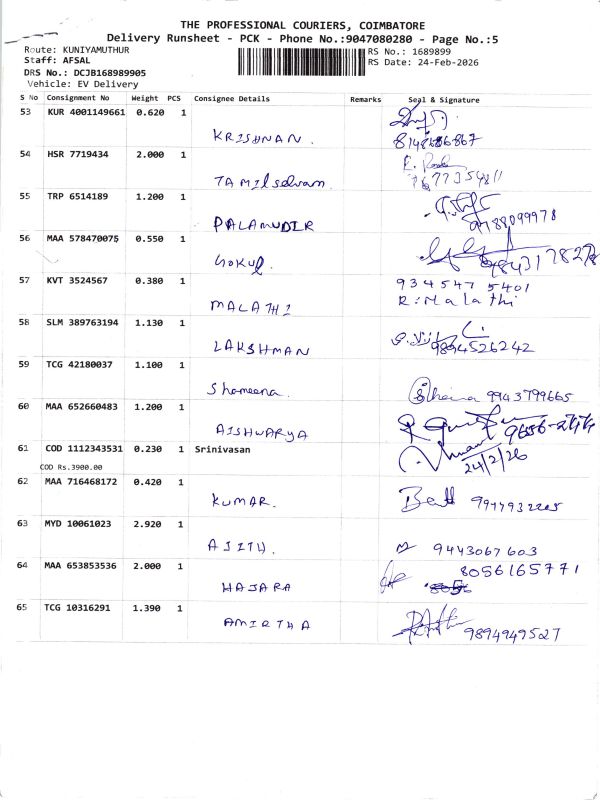 THE PROFESSIONAL COURIERS, COIMBATORE
Delivery Runsheet - PCK - Phone No.:9047080280 - Page No.:5
Route: KUNIYAMUTHUR
RS No.: 1689899
Staff: AFSAL
RS Date: 24-Feb-2026
DRS No.: DCJB168989905
Vehicle: EV Delivery
S No Consignment No Weight PCS Consignee Details Remarks Seal & Signature
53 KUR 4001149661 0.620 1
KRISHNAN.
54 HSR 7719434 2.000 1
TAMIlselvam
55 TRP 6514189 1.200 1
PALAMUDIR
9788099978
56 MAA 578470075 0.550 1
GOKUl
57 KVT 3524567 0.380 1
934547 5401
MALATHI
R. Malathi
58 SLM 389763194 1.130 1
LAKSHMAN
9894526242
59 TCG 42180037 1.100 1
Shameena.
9943799665
60 MAA 652660483 1.200 1
AISHWARYA
61 COD 1112343531 0.230 1 Srinivasan
COD Rs.3900.00
24/2/26
62 MAA 716468172 0.420 1
KUMAR.
63 MYD 10061023 2.920 1
AJITH.
9443067603
64 MAA 653853536 2.000 1
8056165771
HAJARA
65 TCG 10316291 1.390 1
AMIRTHA
9894949527